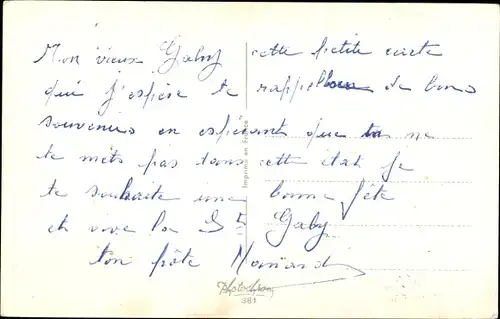 Mon vieux Gaby cette petite carte
qui j'espère te rappellera de bons
souvenirs en esperant que tu ne
te mets pas dans cette état je
te souhaite une bonne fête
et vive la St Gaby
ton pôte
Imprimé en France
381